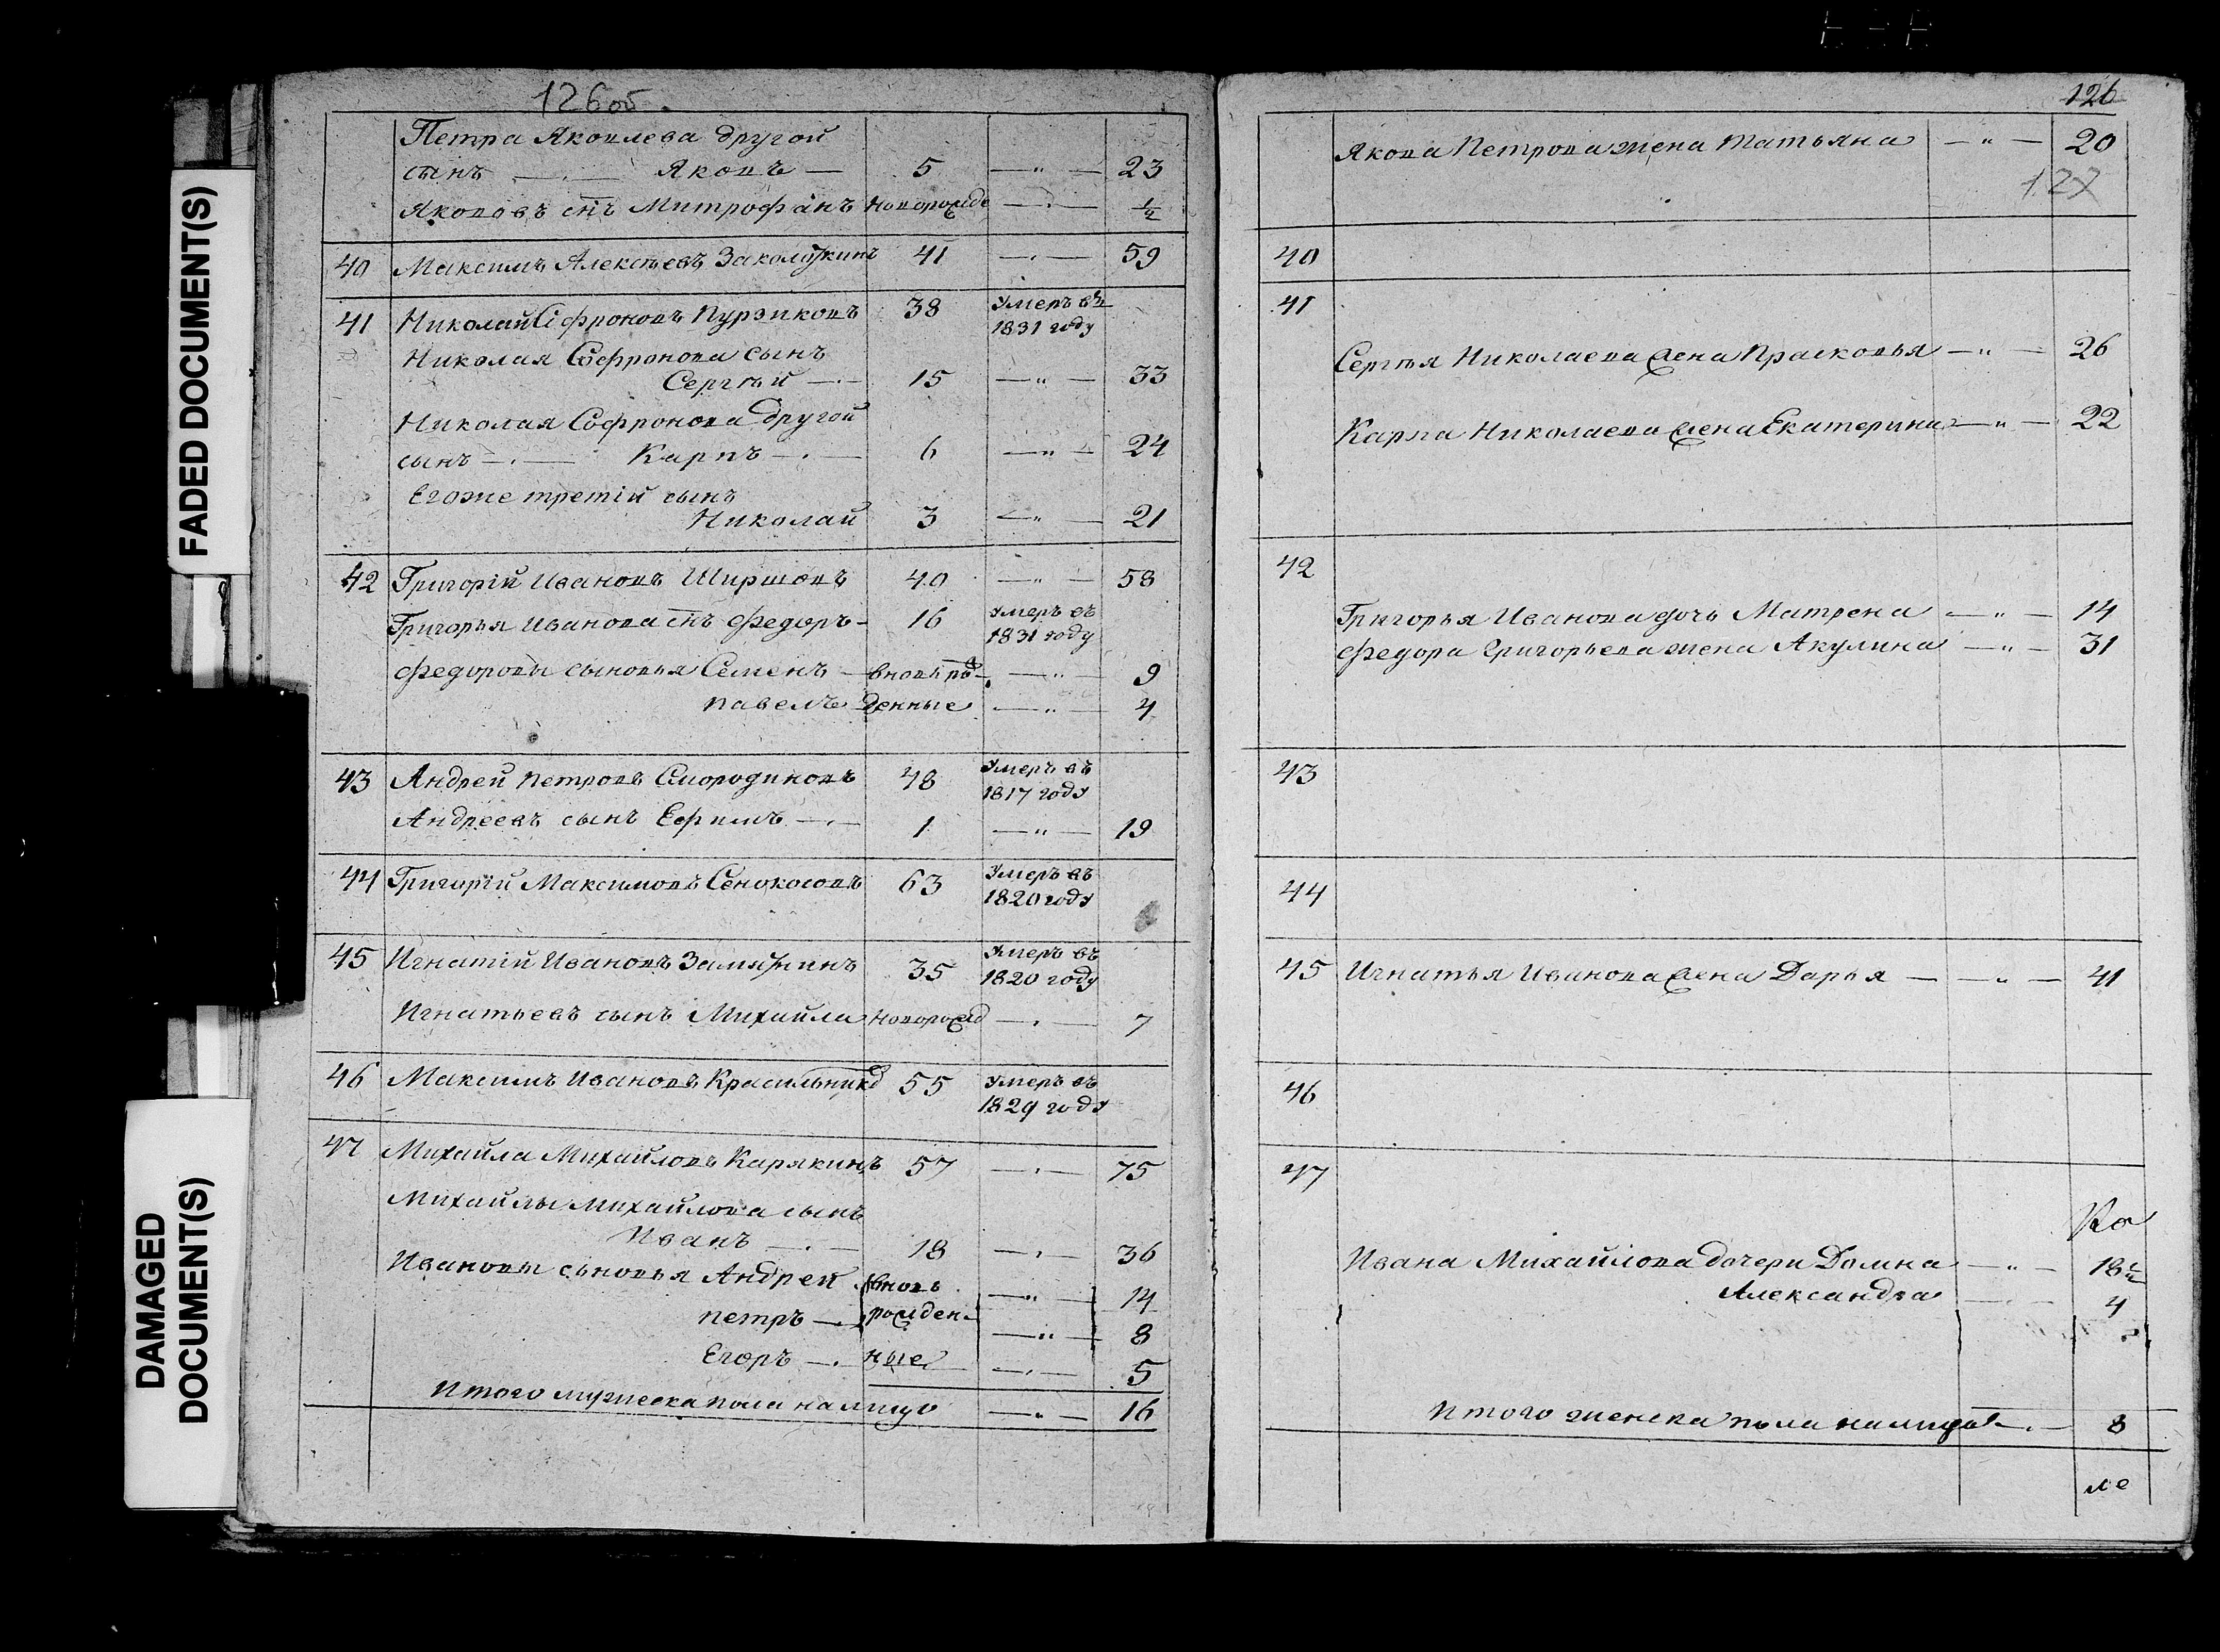 FADED DOCUMENT(S)
DAMAGED
DOCUMENT(S)
126об.
Петра Яковлева другой
сынъ — Яковъ — 5 — " — 23
Яковъ снъ Митрофанъ Новорожде — " — ½
40 Максимъ Алексѣевъ 41 — " — 59
41 Николай Софроновъ Пурзиковъ 38 Умеръ въ
1831 году
Николая Софронова сынъ
Сергѣй — 15 — " — 33
Николая Софронова другой
сынъ — Карпъ — 6 — " — 24
Егоже третій сынъ
Николай 3 — " — 21
42 Григорій Ивановъ Ширшовъ 40 — " — 58
Григорья Иванова снъ Федоръ — 16 Умеръ въ
1831 году
Федоровы сыновья Семенъ — вновь рож — " — 9
Павелъ денные — " — 4
43 Андрей Петровъ Смородиновъ 48 Умеръ въ
1817 году
Андреевъ сынъ Ефимъ — 1 — " — 19
44 Григорій Максимовъ Сенокосовъ 63 Умеръ въ
1820 году
45 Игнатій Ивановъ Замятнинъ 35 Умеръ въ
1820 году
Игнатьевъ сынъ Михайла Новорожд — " — 7
46 Максимъ Ивановъ Красильникъ 55 Умеръ въ
1829 году
47 Михайла Михайловъ Карякинъ 57 — " — 75
Михайлы Михайлова сынъ
Иванъ — 18 — " — 36
Ивановы сыновья Андрей вновь — " — 14
Петръ — рожден — " — 8
Егоръ — ные — " — 5
Итого мужеска пола налицо — " — 16
126
Якова Петрова жена Татьяна — " — 20
127
40
41
Сергѣя Николаева жена Прасковья — " — 26
Карпа Николаева жена Екатерина — " — 22
42
Григорья Иванова дочь Матрена — " — 14
Федора Григорьева жена Акулина — " — 31
43
44
45 Игнатья Иванова жена Дарья — " — 41
46
47
Ивана Михайлова дочери Домна — " — 18½
Александра — " — 4
Итого женска пола налицо — " — 8
ле